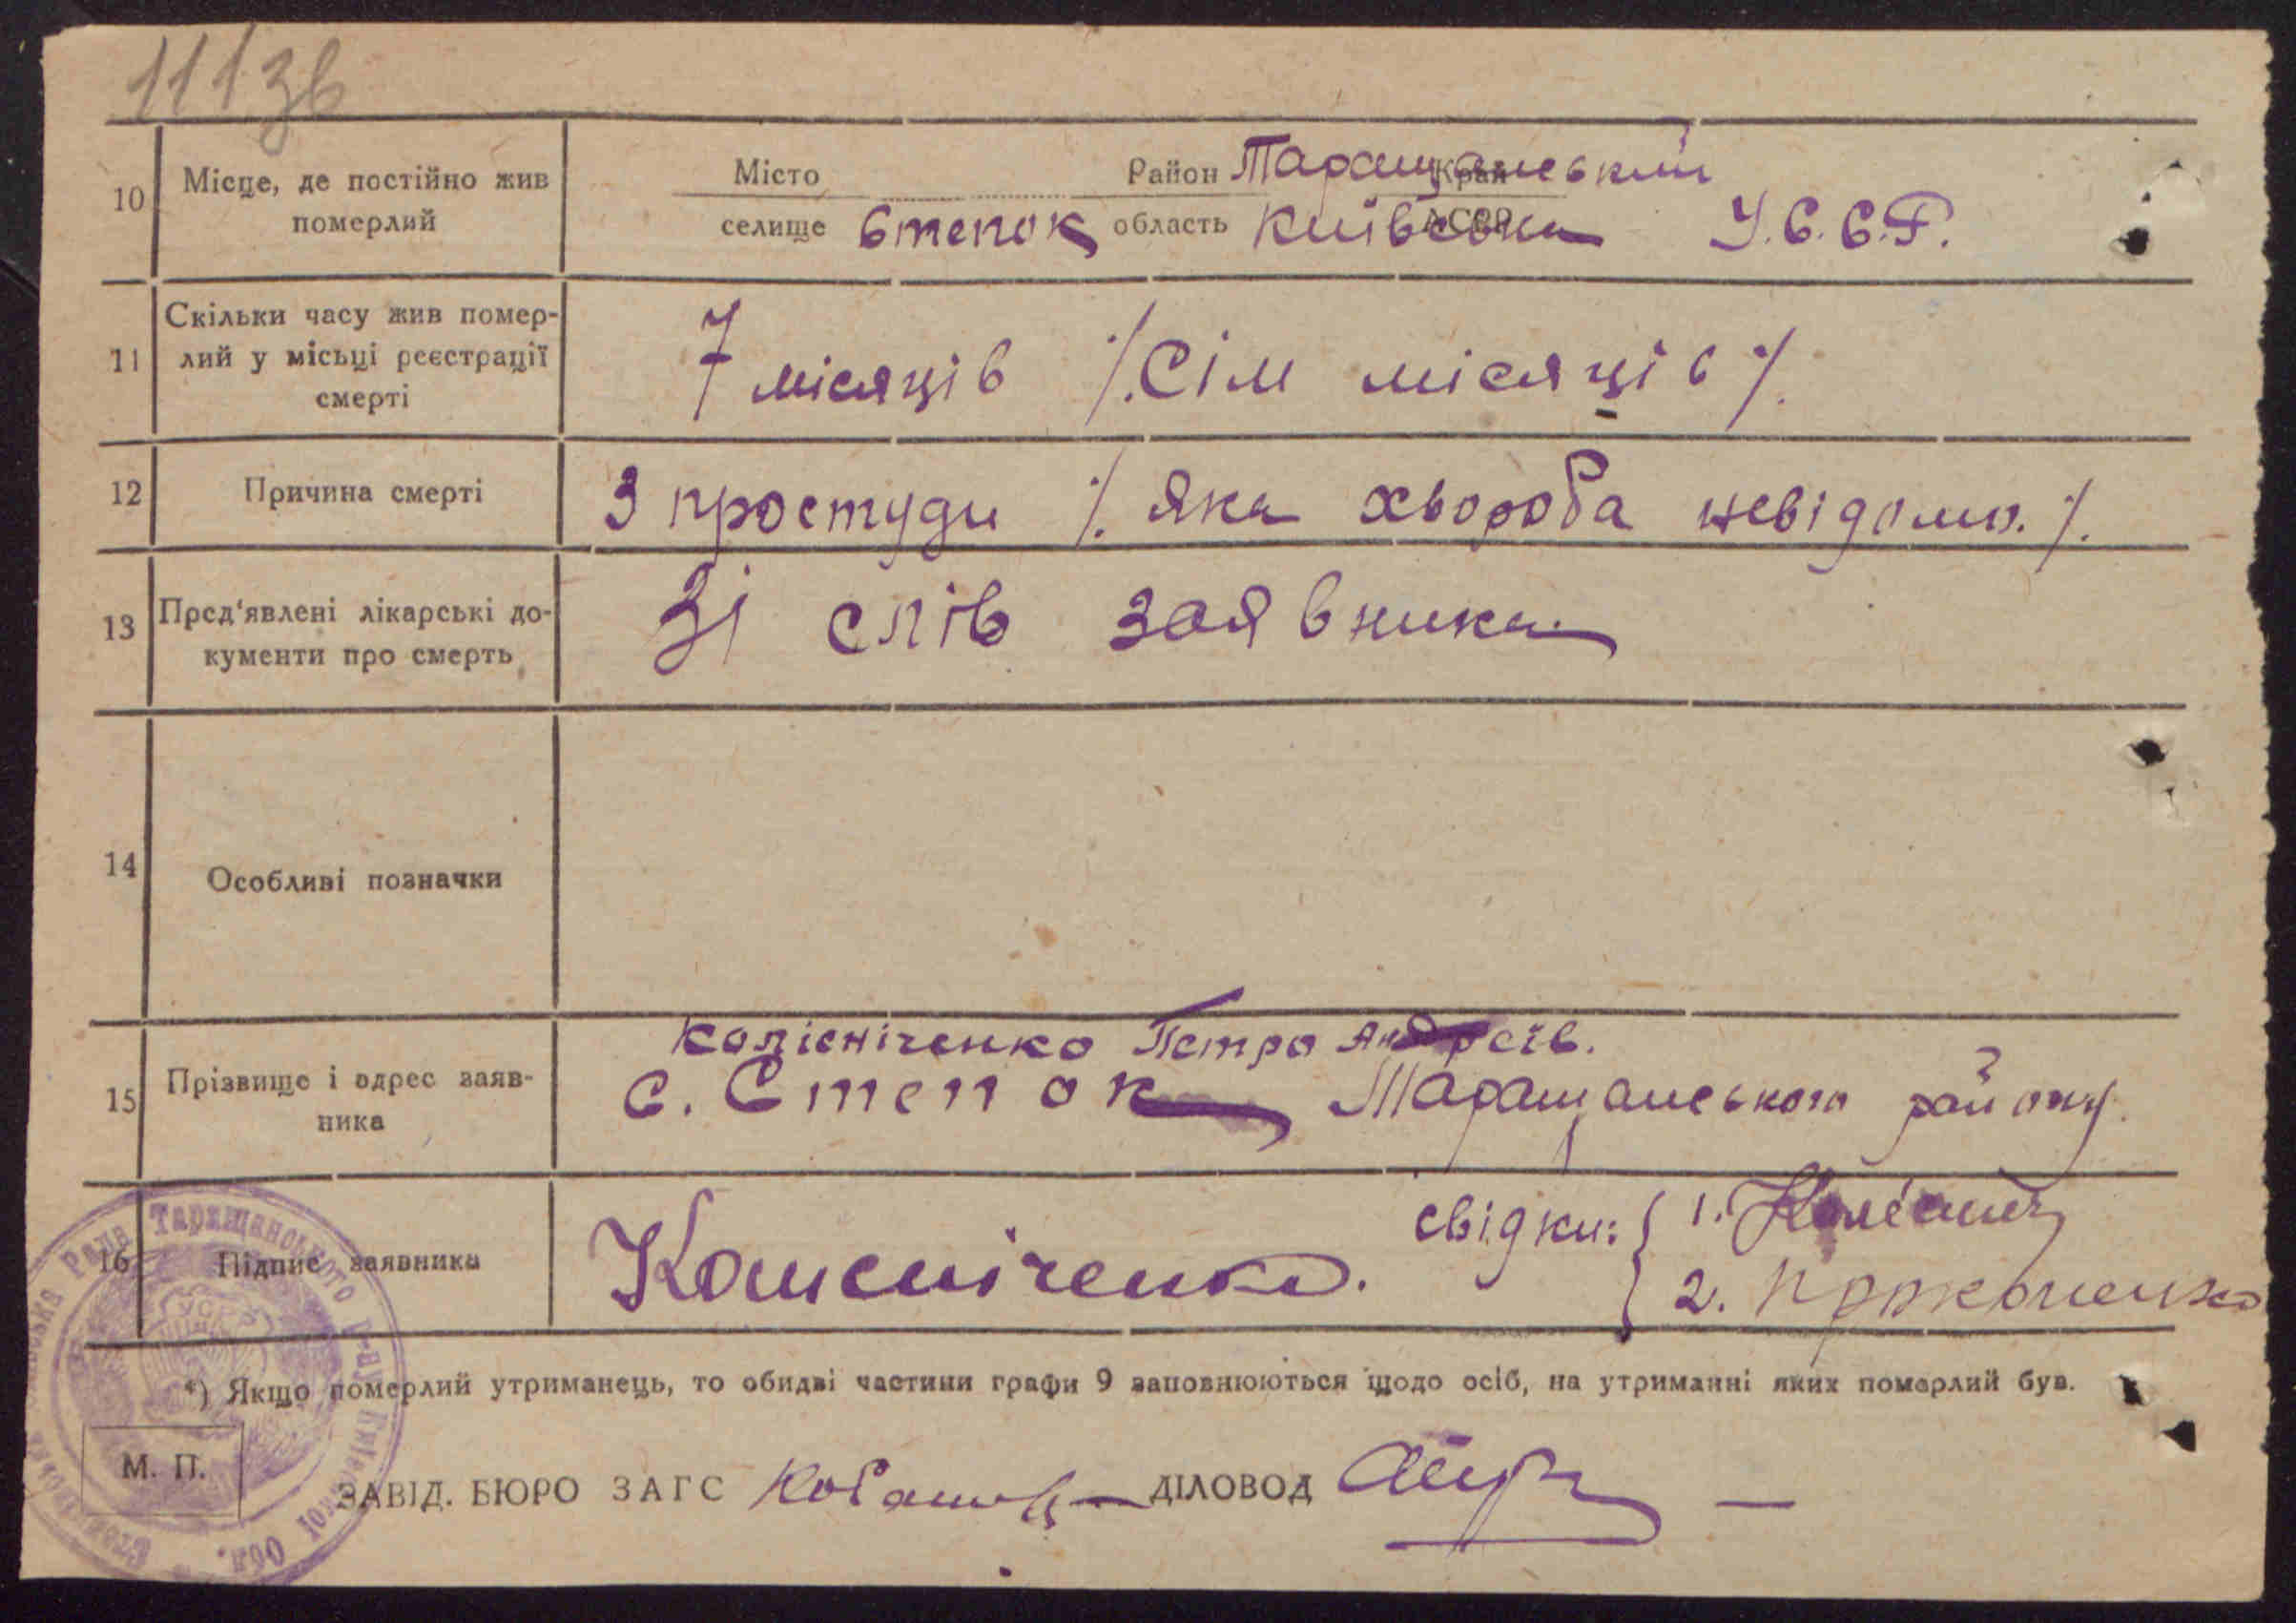 111зв
10 Місце, де постійно жив
померлий
Місто Район Таращанський Край
селище Степок область Київська АССР У.С.С.Р.
11 Скільки часу жив помер-
лий у місьці реєстрації
смерті
7 місяців /.Сім місяців/.
12 Причина смерті З простуди /. яка хвороба невідомо./.
13 Пред'явлені лікарські до-
кументи про смерть
Зі слів заявника
14 Особливі позначки
15 Прізвище і адрес заяв-
ника
Колісніченко Петро Андреїв.
с. Степок Таращанського району.
16 Підпис заявника Колісніченко. свідки: 1.
2. Прокопенко
*) Якщо померлий утриманець, то обидві частини графи 9 заповнюються щодо осіб, на утриманні яких померлий був.
М. П.
ЗАВІД. БЮРО ЗАГС ДІЛОВОД
Рада Таращанського Р-ну Київської Обл.
УСРР